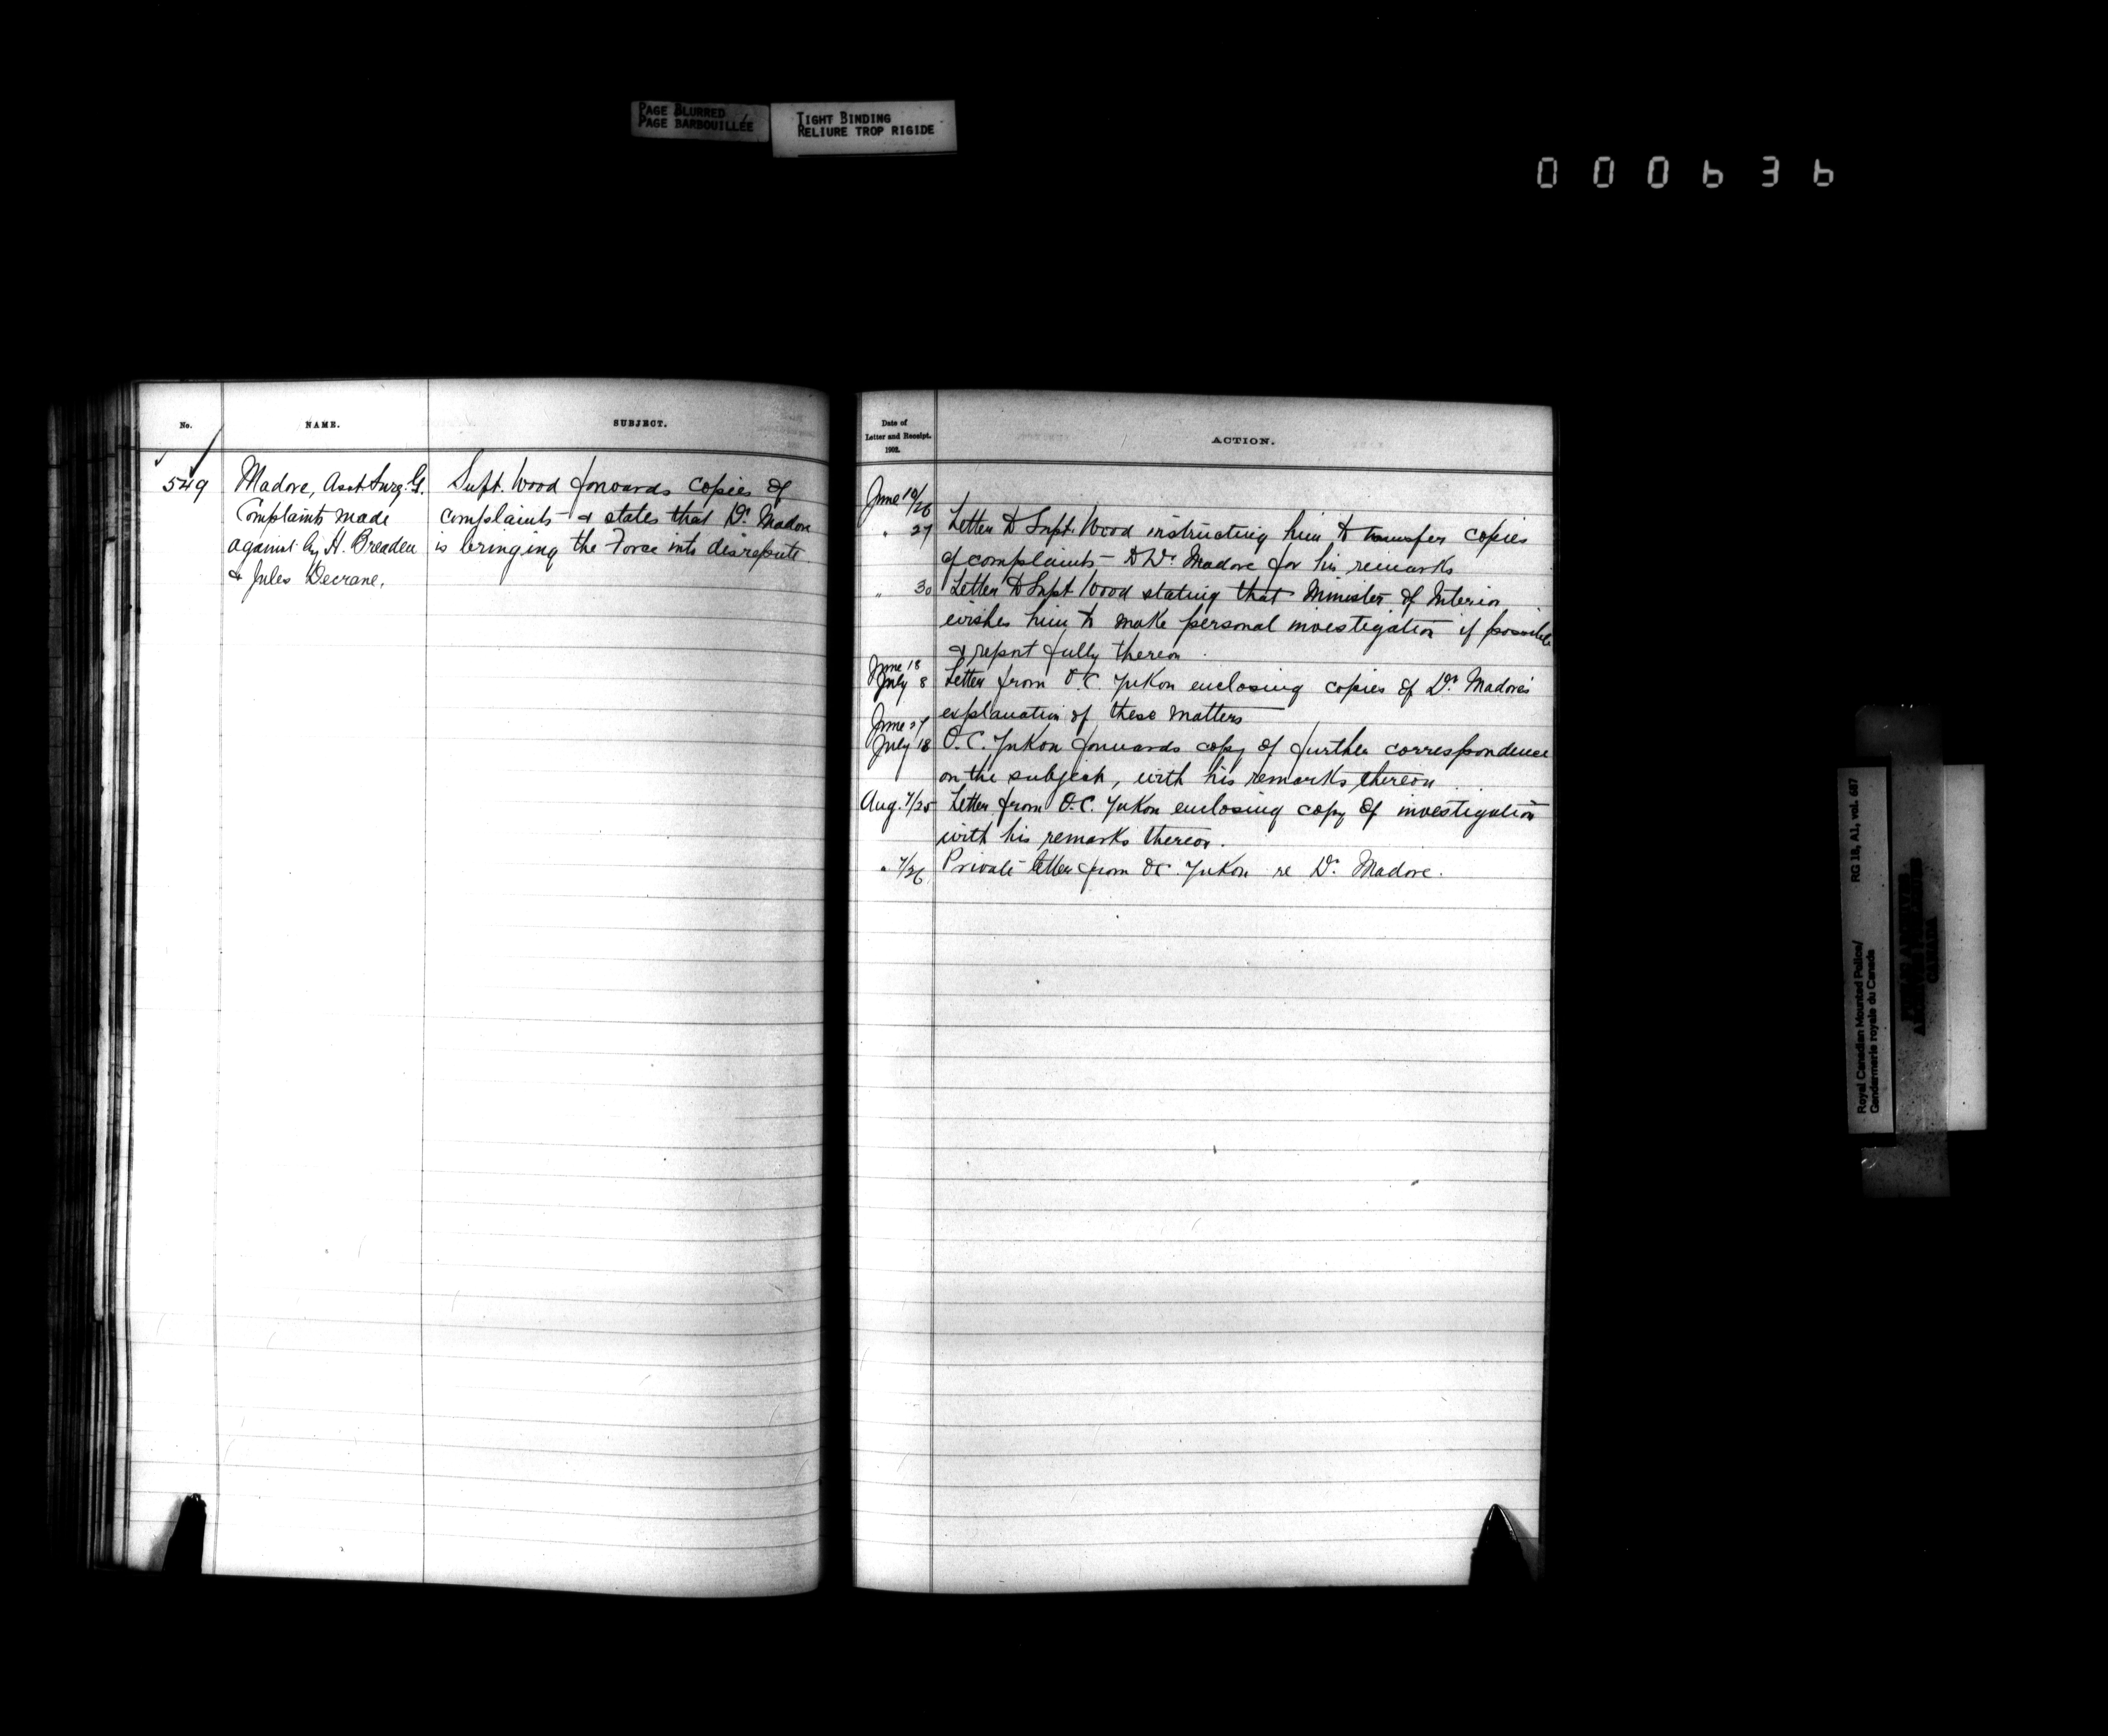 PAGE BLURRED
PAGE BARBOUILLÉE
TIGHT BINDING
RELIURE TROP RIGIDE
000636
No.
NAME.
SUBJECT.
549
Madore, Asst. Surg. G.
Complaints made
against by H. Breaden
& Jules Decrane,
Supt. Wood forwards copies of
complaints & states that Dr. Madore
is bringing the Force into disrepute.
Date of
Letter and Receipt.
1902.
ACTION.
June 10/26
" 27 Letter to Supt. Wood instructing him to transfer copies
of complaints to Dr. Madore for his remarks
" 30 Letter to Supt Wood stating that Minister of Interior
wishes him to make personal investigation if possible
& report fully thereon.
June 18
July 8 Letter from O.C. Yukon enclosing copies of Dr. Madore's
explanation of these matters
June 27
July 18 O.C. Yukon forwards copy of further correspondence
on the subject, with his remarks thereon.
Aug. 7/25 Letter from O.C. Yukon enclosing copy of investigation
with his remarks thereon.
" 7/26 Private letter from OC Yukon re Dr. Madore.
RG 18, A1, vol. 687
Royal Canadian Mounted Police/
Gendarmerie royale du Canada
CANADA